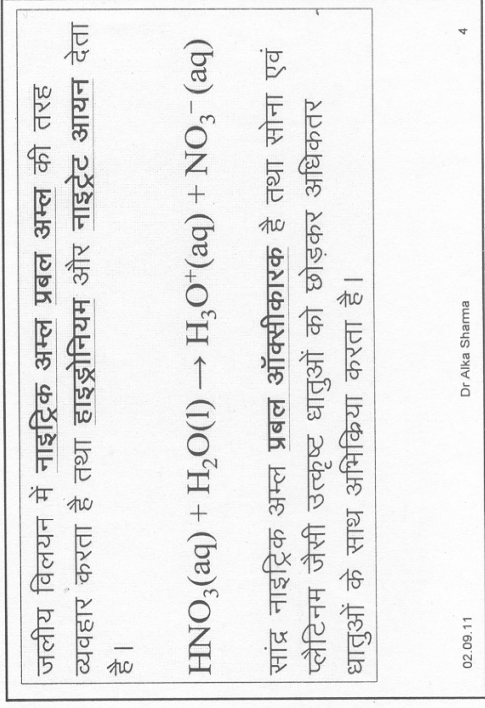 जलीय विलयन में नाइट्रिक अम्ल प्रबल अम्ल की तरह
व्यवहार करता है तथा हाइड्रोनियम और नाइट्रेट आयन देता
है।
HNO₃(aq) + H₂O(l) → H₃O⁺(aq) + NO₃⁻(aq)
सांद्र नाइट्रिक अम्ल प्रबल ऑक्सीकारक है तथा सोना एवं
प्लेटिनम जैसी उत्कृष्ट धातुओं को छोड़कर अधिकतर
धातुओं के साथ अभिक्रिया करता है।
02.09.11 Dr Alka Sharma 4